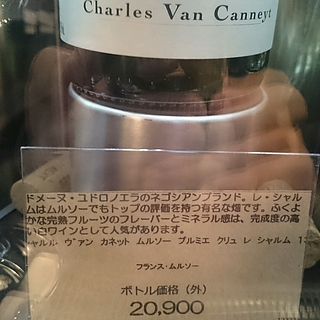 Charles Van Canneyt
ドメーヌ・ユドロノエラのネゴシアンブランド。レ・シャル
ムはムルソーでもトップの評価を持つ有名な畑です。ふくよ
かな完熟フルーツのフレーバーとミネラル感は、完成度の高
いワインとして人気があります。
シャルル ヴァン カネット ムルソー プルミエ クリュ レ シャルム
フランス・ムルソー
ボトル価格（外）
20,900